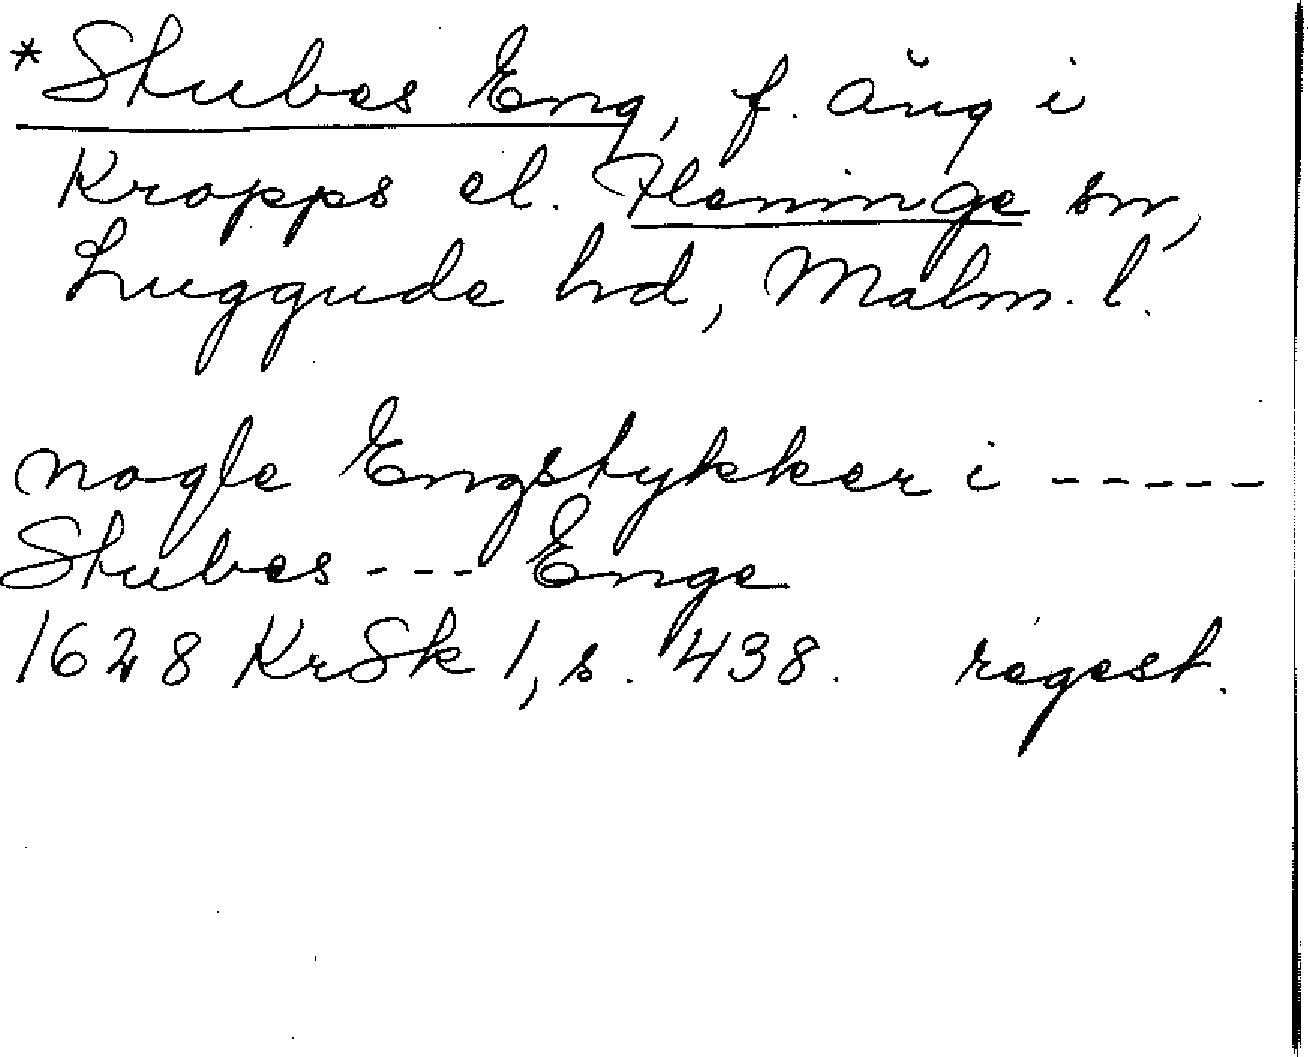 *Stubes Eng, f. äng i
Kropps el. Fleninge sn,
Luggude hd, Malm. l.
nogle Engstykker i -----
Stubes --- Enge
1628 KrSk 1, s. 438. regest.